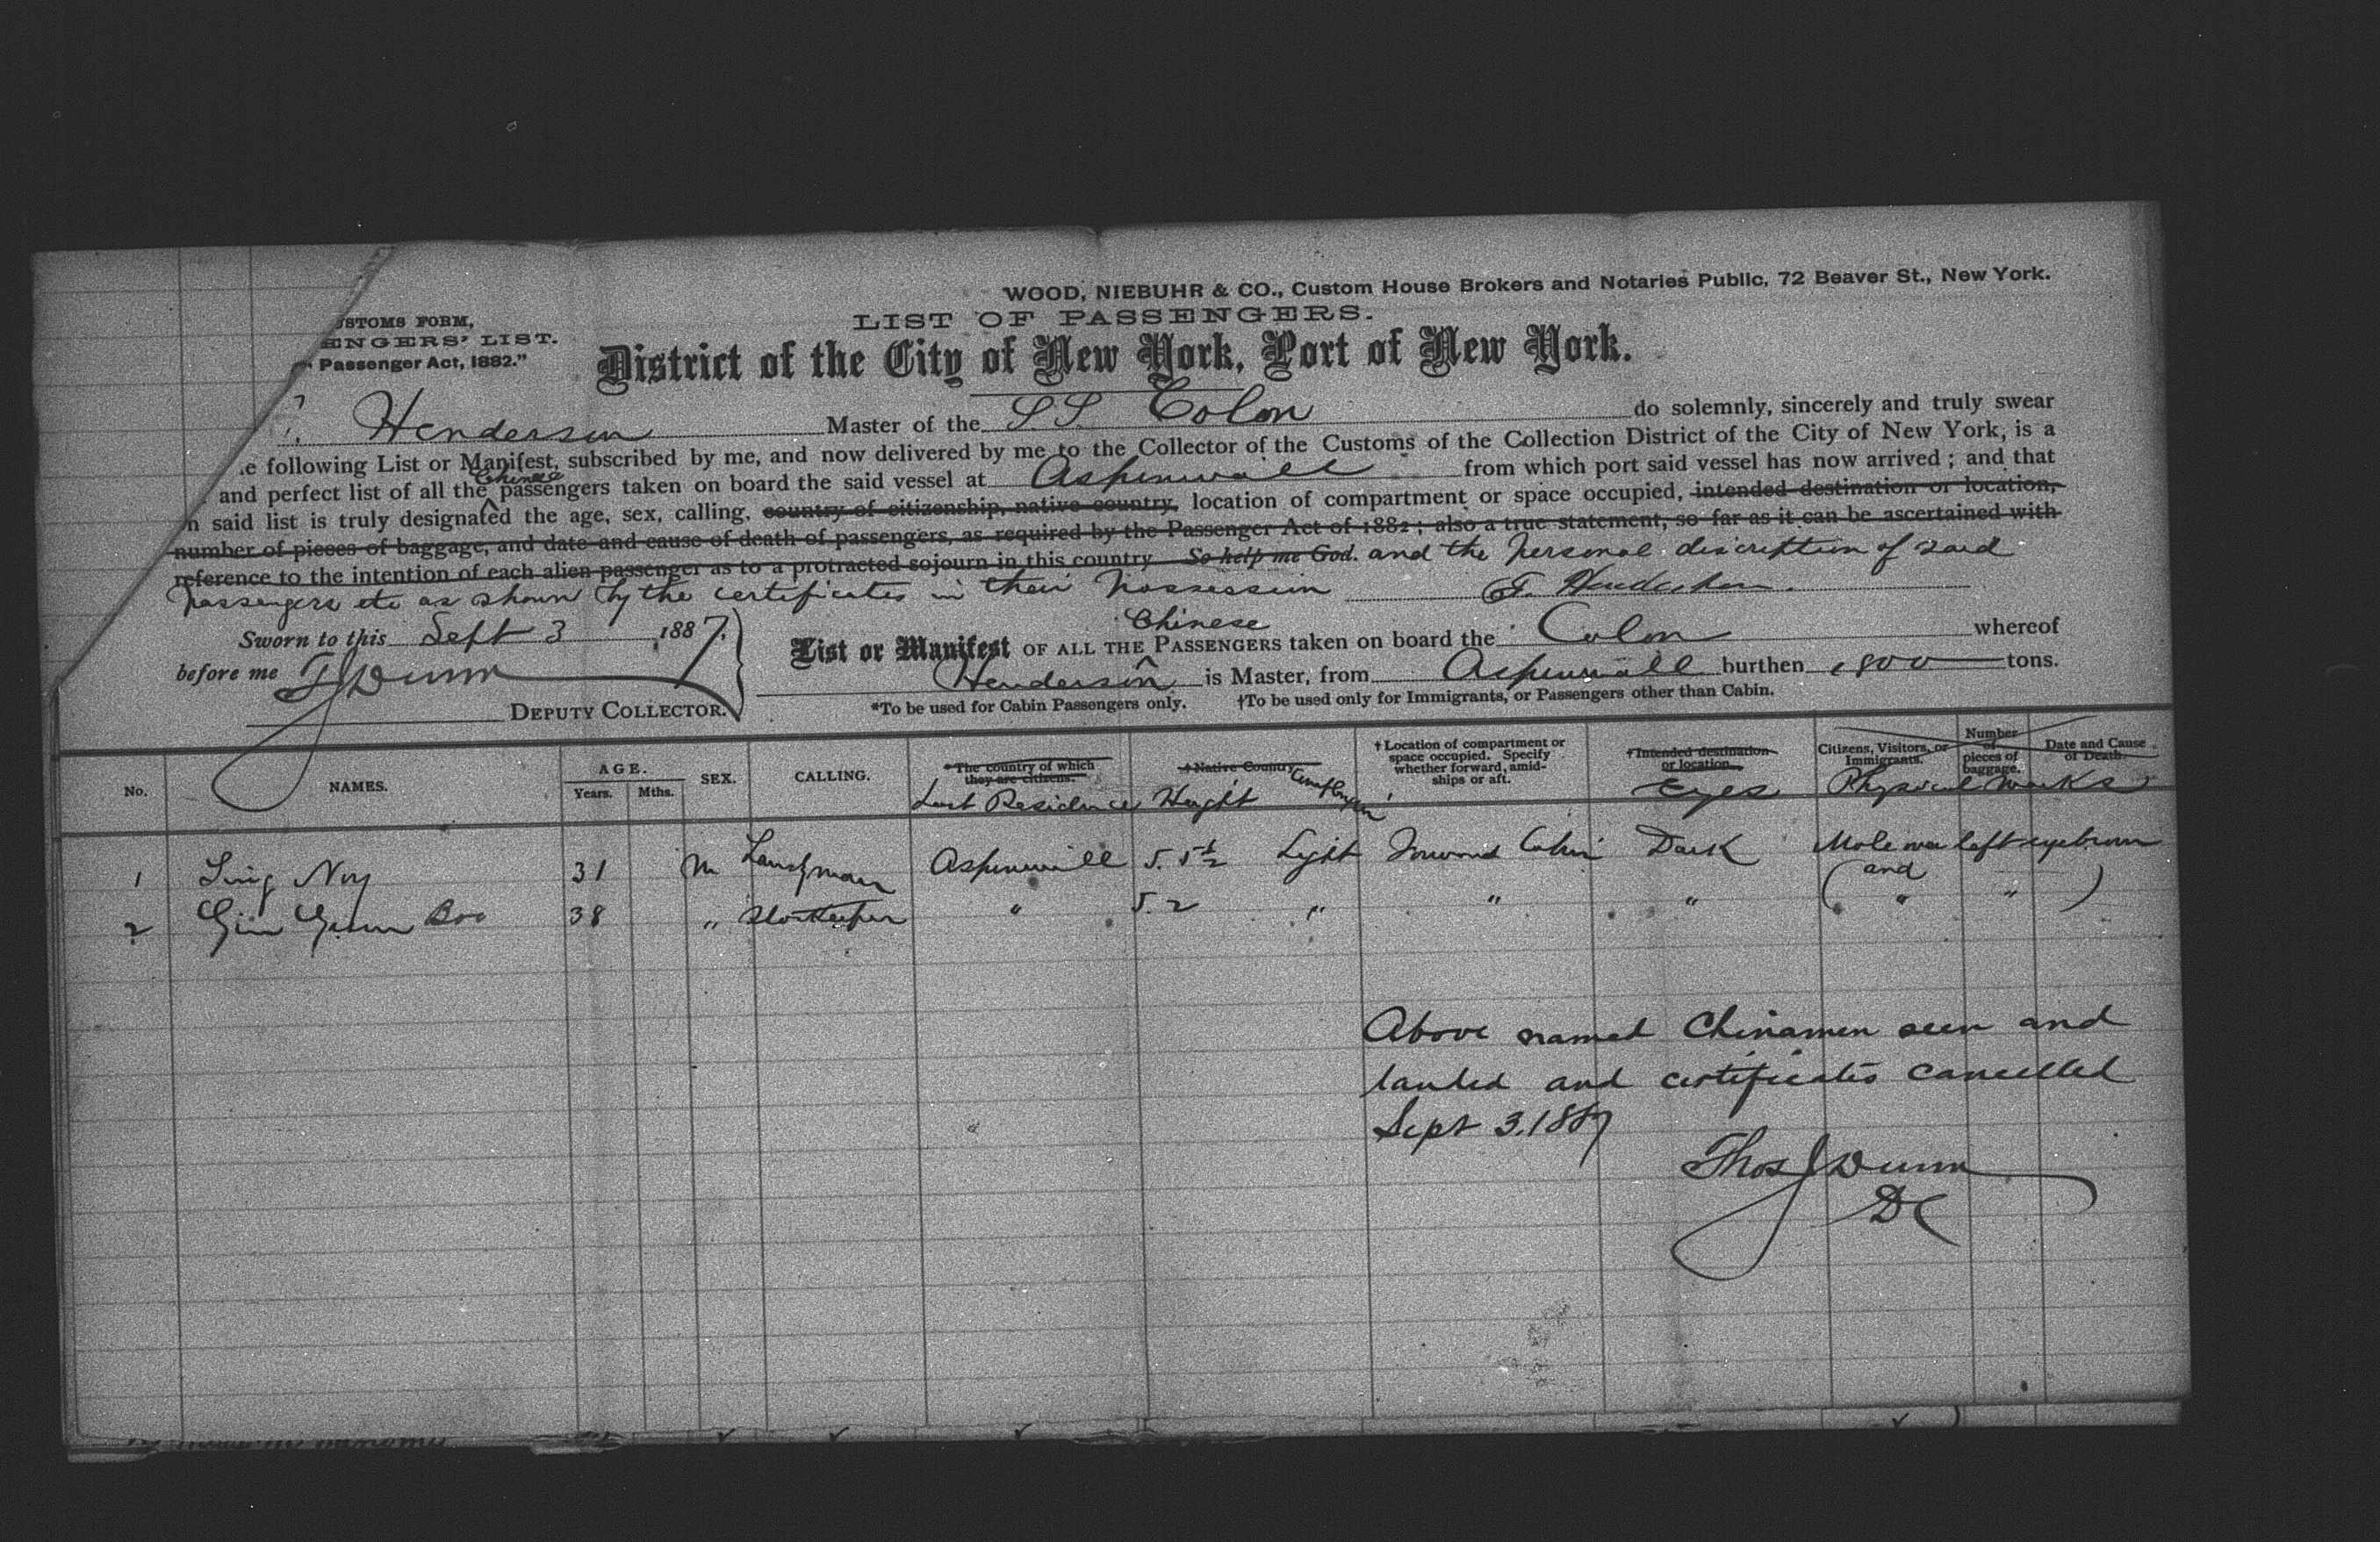 WOOD, NIEBUHR & CO., Custom House Brokers and Notaries Public, 72 Beaver St., New York.
USTOMS FORM,
ENGERS' LIST.
Passenger Act, 1882."
LIST OF PASSENGERS.
District of the City of New York, Port of New York.
Henderson Master of the SS Colon do solemnly, sincerely and truly swear
e following List or Manifest, subscribed by me, and now delivered by me to the Collector of the Customs of the Collection District of the City of New York, is a
and perfect list of all the Chinese passengers taken on board the said vessel at Aspinwall from which port said vessel has now arrived; and that
n said list is truly designated the age, sex, calling, country of citizenship, native country, location of compartment or space occupied, intended destination or location,
number of pieces of baggage, and date and cause of death of passengers, as required by the Passenger Act of 1882; also a true statement, so far as it can be ascertained with
reference to the intention of each alien passenger as to a protracted sojourn in this country So help me God. and the personal discription of said
passengers etc as shown by the certificates in their possession F. Henderson.
Sworn to this Sept 3 1887.
before me TJDunn
DEPUTY COLLECTOR.
List or Manifest OF ALL THE Chinese PASSENGERS taken on board the Colon whereof
Henderson is Master, from Aspinwall burthen 1800 tons.
*To be used for Cabin Passengers only. †To be used only for Immigrants, or Passengers other than Cabin.
No. NAMES. AGE. Years. Mths. SEX. CALLING. *The country of which they are citizens. Last Residence †Native Country Height †Location of compartment or space occupied. Specify whether forward, amidships or aft. †Intended destination or location. Eyes Citizens, Visitors, or Immigrants. Number of pieces of baggage. Date and Cause of Death. Physical Marks
1 Ling Noy 31 M Aspinwall 5.5½ Light Forward Cabin Dark Mole over left eyebrow
2 Boo 38 " Storekeeper " 5.2 " " " (and " " )
Above named Chinamen seen and
landed and certificates cancelled
Sept 3.1887
Thos JDunn
DC